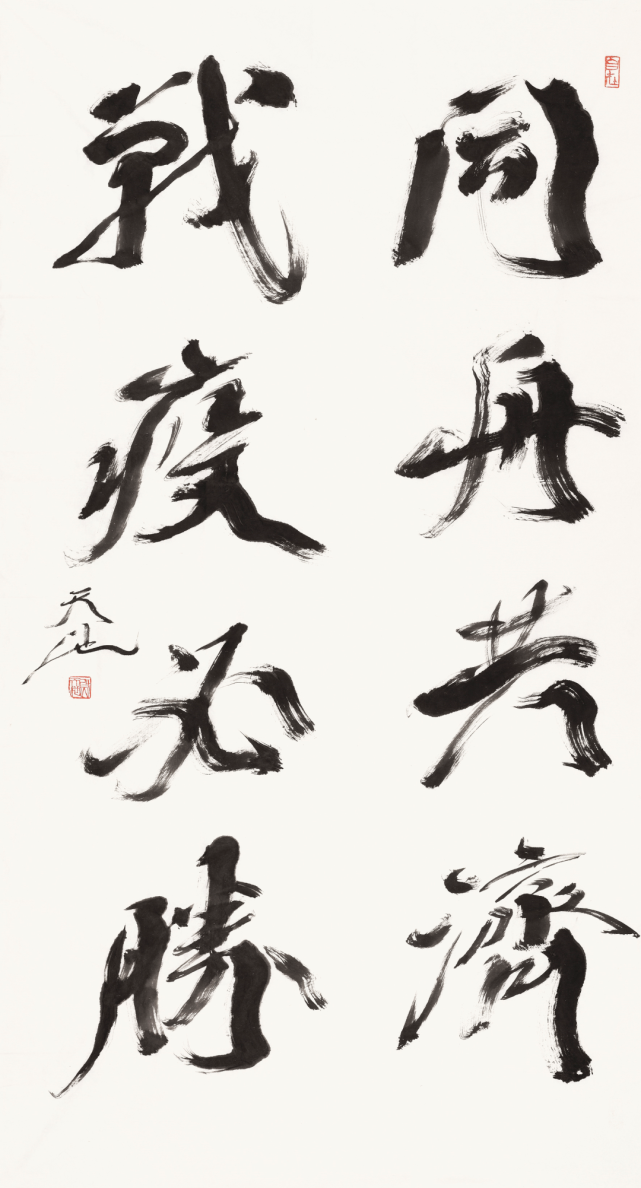 同舟共濟
戰疫必勝